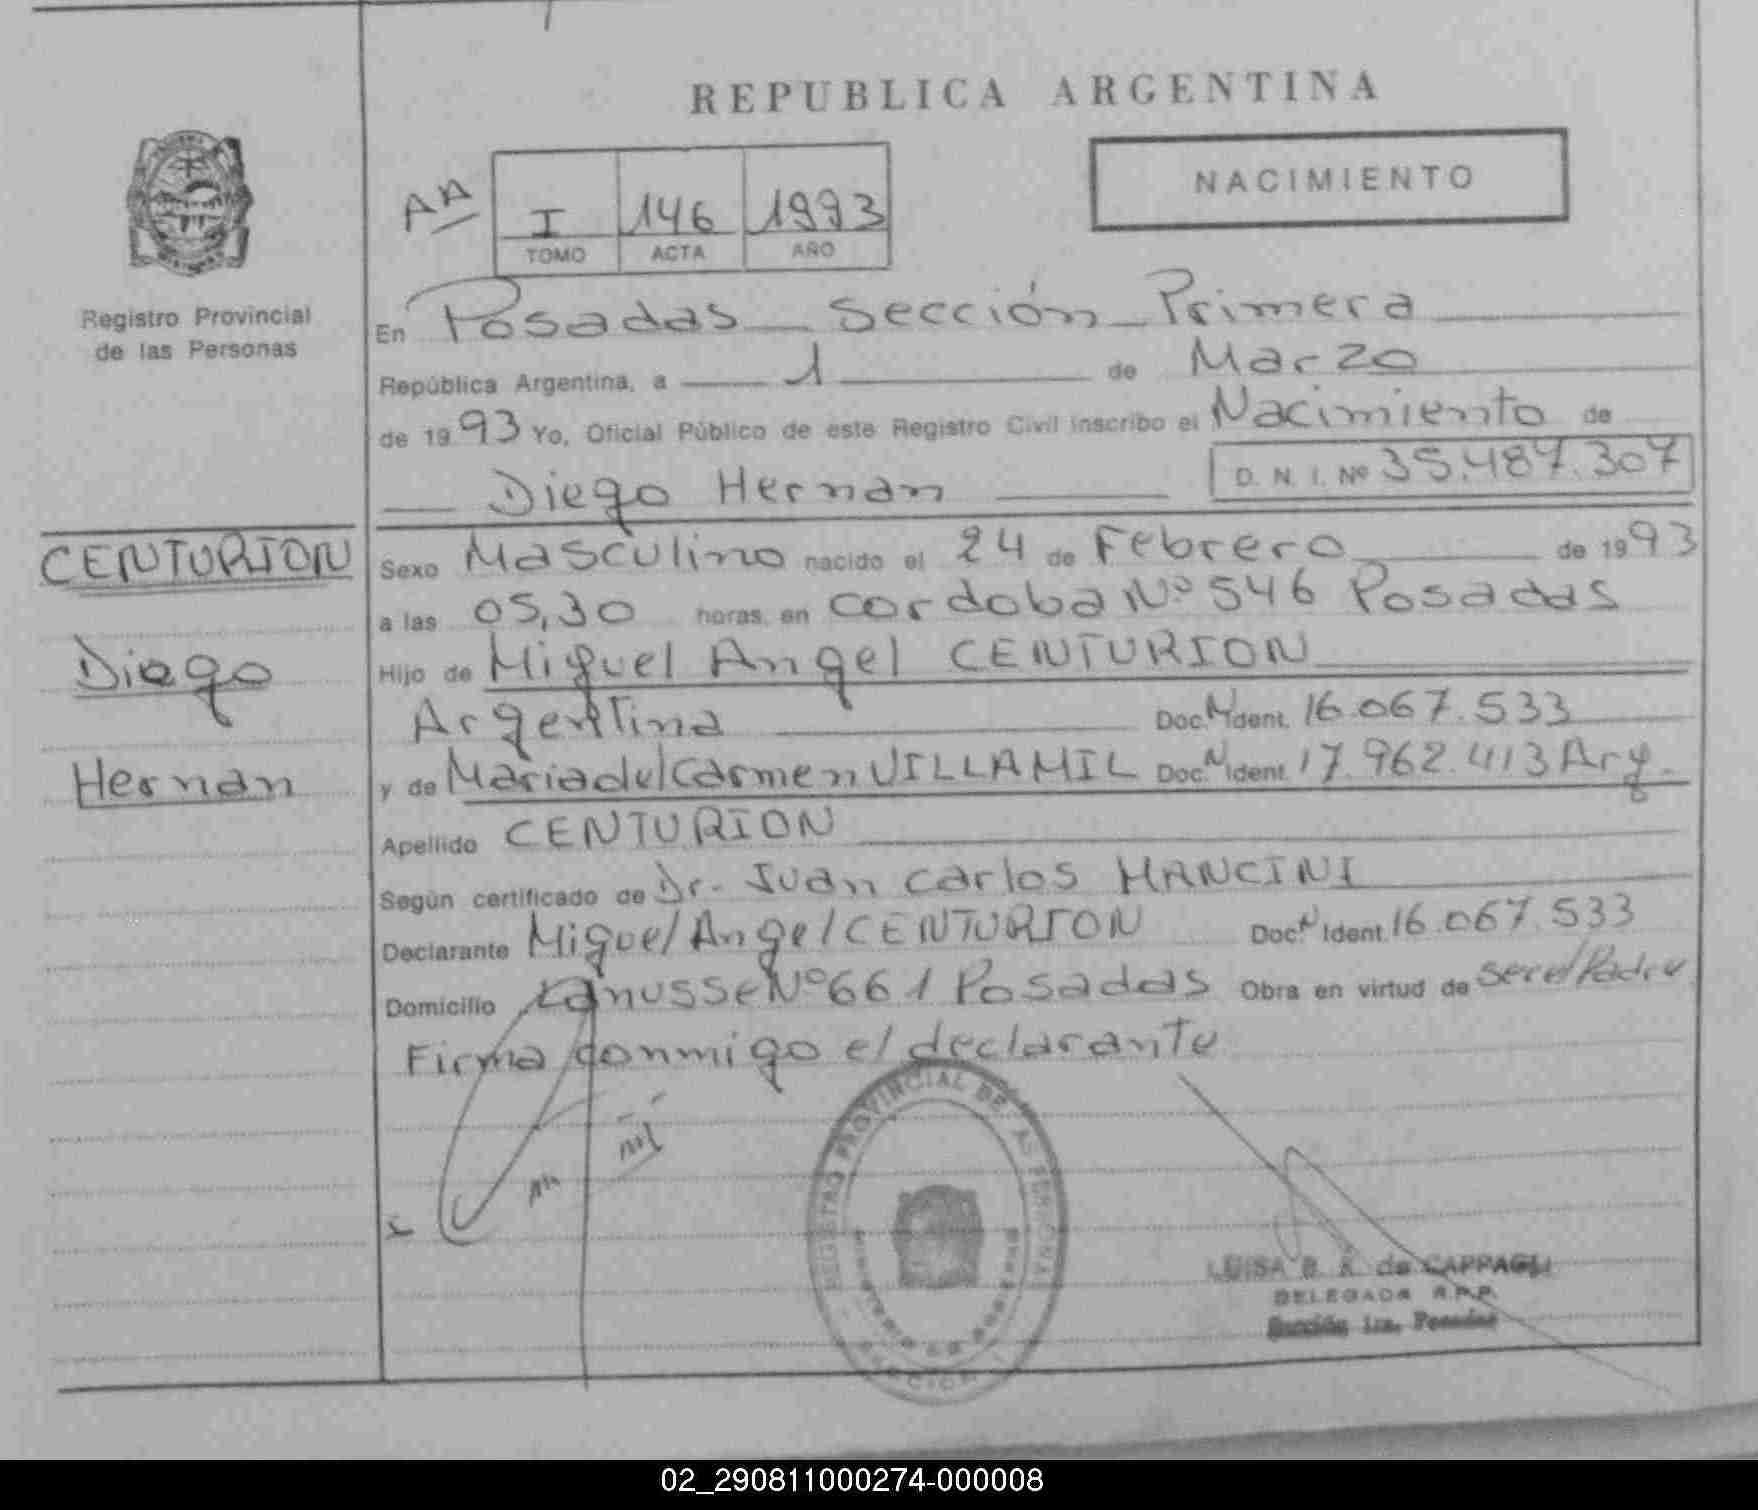 REPUBLICA ARGENTINA
AA
I 146 1993
TOMO ACTA AÑO
NACIMIENTO
Registro Provincial
de las Personas
En Posadas Sección Primera
República Argentina, a 1 de Marzo
de 1993 Yo, Oficial Público de este Registro Civil inscribo el Nacimiento de
Diego Hernan D. N. I. Nº 35.487.307
CENTURION
Diego
Hernan
Sexo Masculino nacido el 24 de Febrero de 1993
a las 05,30 horas en Cordoba Nº 546 Posadas
Hijo de Miguel Angel CENTURION
Argentina Doc. N Ident. 16.067.533
y de Maria del Carmen VILLAMIL Doc. N Ident. 17.962.413 Arg.
Apellido CENTURION
Según certificado de Dr. Juan Carlos MANCINI
Declarante Miguel Angel CENTURION Doc. N Ident. 16.067.533
Domicilio Lanusse Nº 661 Posadas Obra en virtud de ser el Padre
Firma conmigo el declarante
REGISTRO PROVINCIAL DE LAS PERSONAS
LUISA B. K. de CAPPAGLI
DELEGADA R.P.P.
Sección 1ra. Posadas
02_290811000274-000008